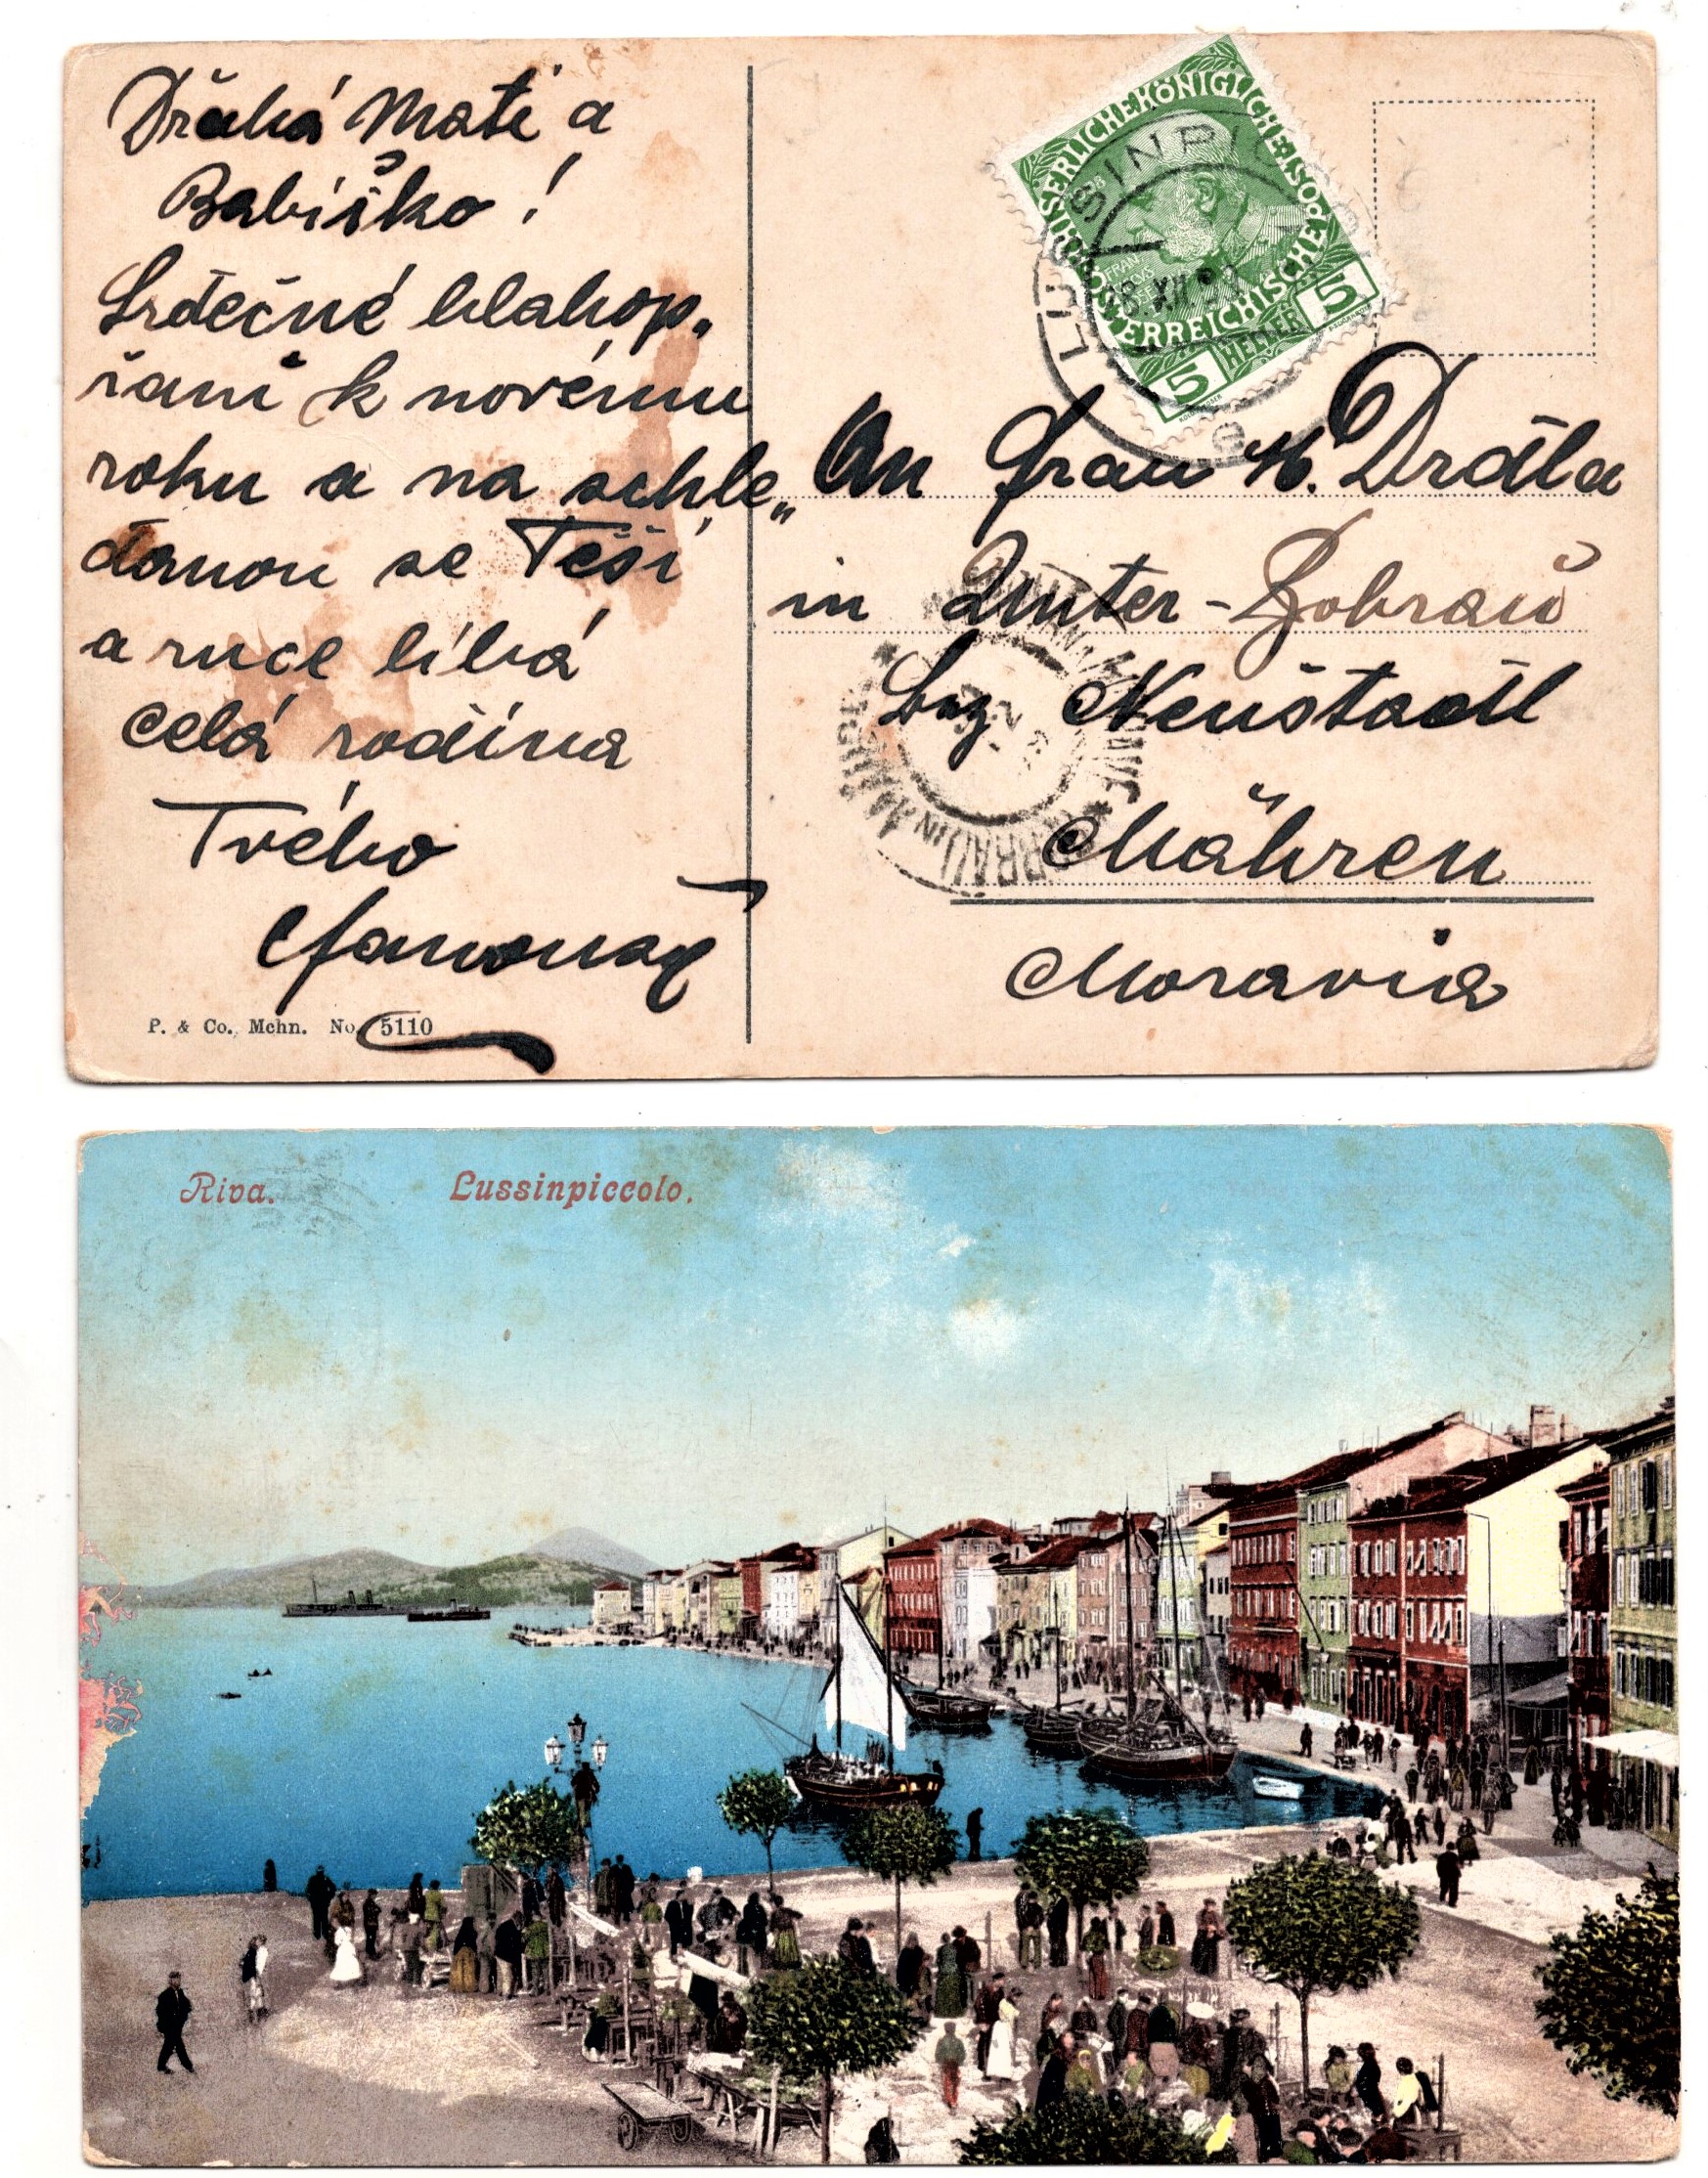 Drahá Mati a
Babičko!
Srdečné blahop„
řani k novému
roku a na schle„
danou se Těší
a ruce líbá
celá rodina
Tvého
P. & Co. Mchn. No. 5110
KAISERLICHE KÖNIGLICHE
ÖSTERREICHISCHE
5 HELLER 5
LUSSINPICCOLO
An Frau M. Drdla
in Unter-Bobrau
bez Neustadtl
Mähren
Moravia
Riva. Lussinpiccolo.